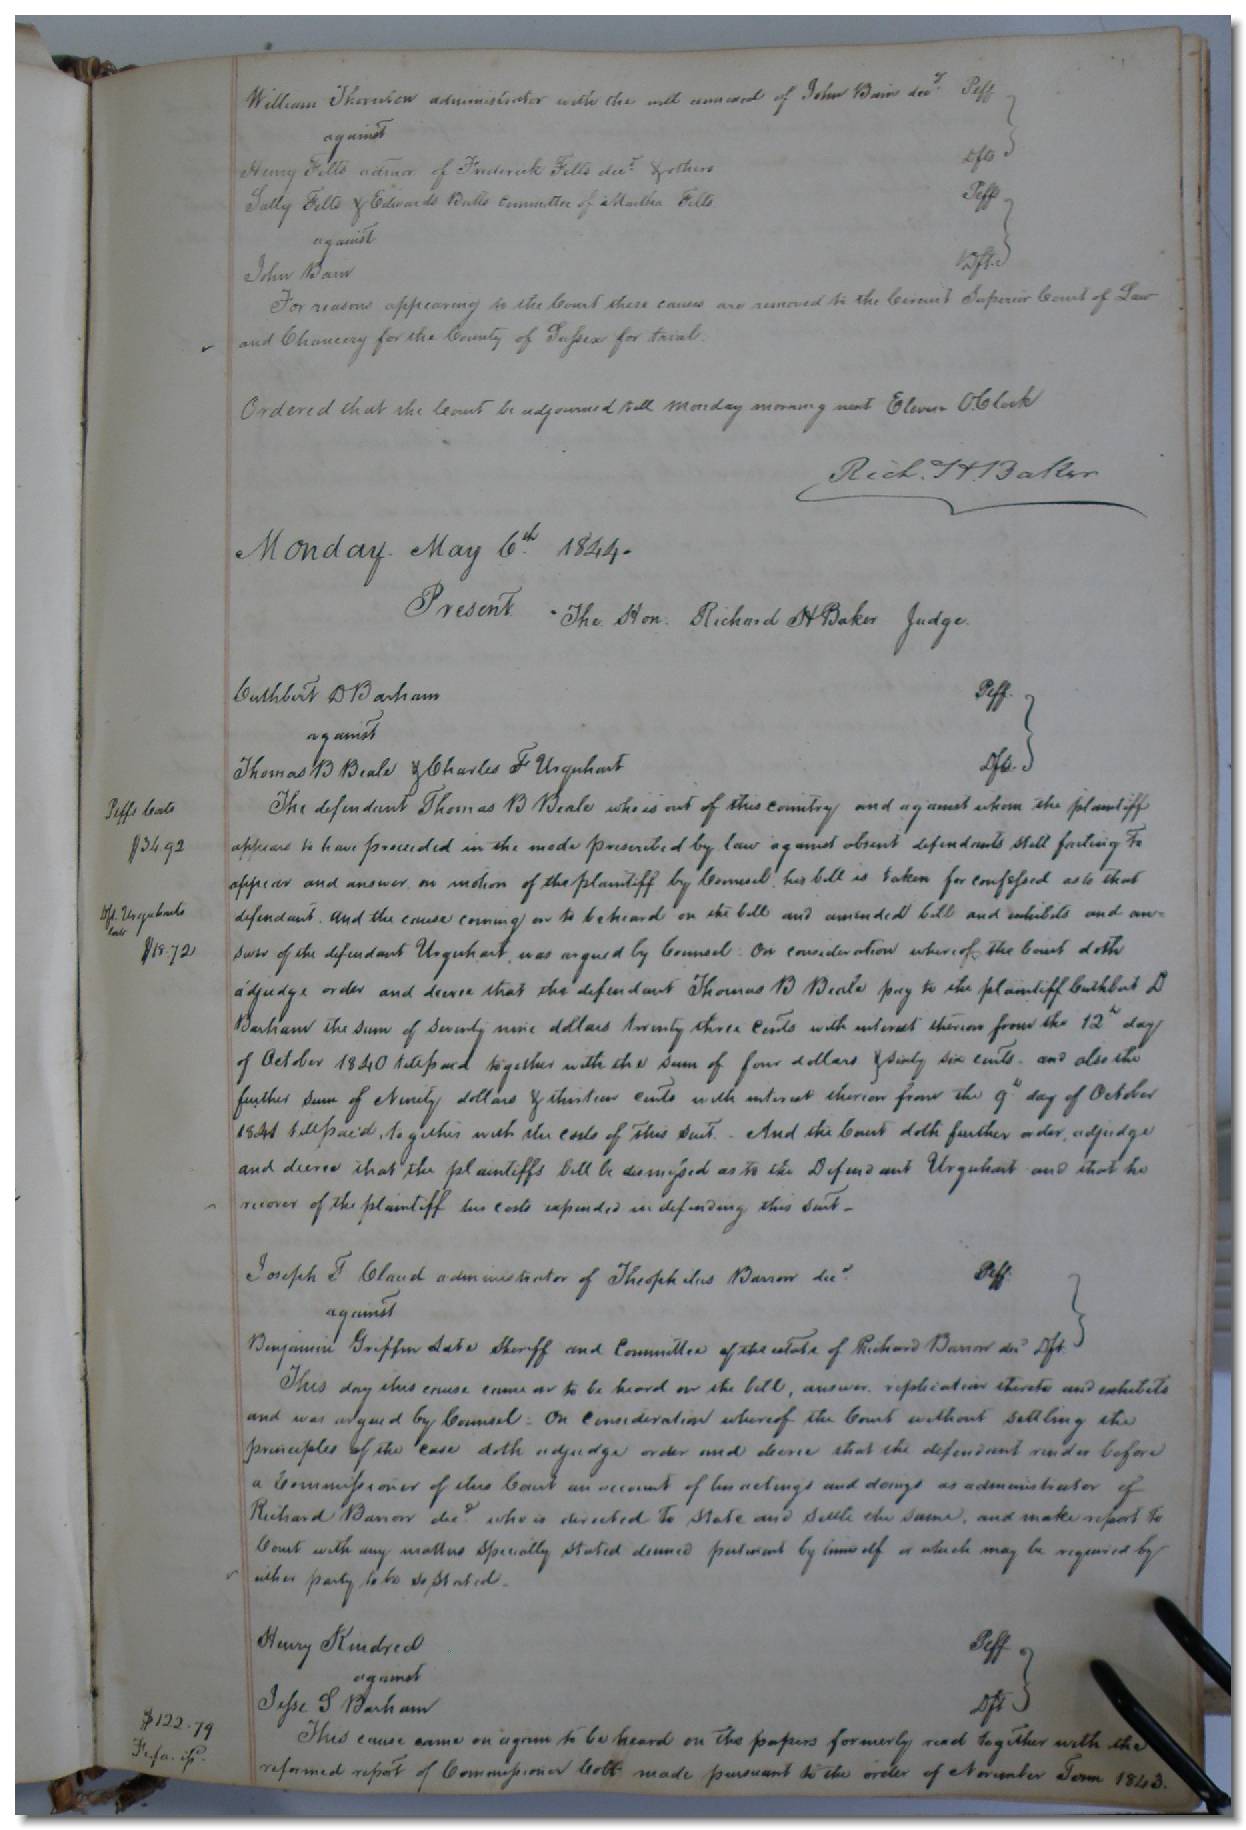 William Thornton administrator with the will annexed of John Bain decd. Plff
against
Henry Felts admor. of Frederick Felts decd. & others Dfts
Sally Felts & Edwards Butts Committee of Martha Felts Plffs
against
John Bain Dft.
For reasons appearing to the Court these causes are removed to the Circuit Superior Court of Law
and Chancery for the County of Sussex for trial.
Ordered that the Court be adjourned till Monday morning next Eleven O.Clock
Rich. H. Baker
Monday May 6th. 1844.
Present. The Hon. Richard H Baker Judge.
Cuthbert D Barham Plff.
against
Thomas B Beale & Charles F Urquhart Dfts.
Plffs Costs
$34.92
Dft. Urquharts
Costs
$18.72
The defendant Thomas B Beale who is out of this country and against whom the plaintiff
appears to have proceeded in the mode prescribed by law against absent defendants still failing to
appear and answer, on motion of the plaintiff by Counsel, his bill is taken for confessed as to that
defendant. And the cause coming on to be heard on the bill and amended bill and exhibits and an-
swer of the defendant Urquhart, was argued by Counsel: On consideration whereof, the Court doth
adjudge order and decree that the defendant Thomas B Beale pay to the plaintiff Cuthbert D
Barham the sum of seventy nine dollars twenty three cents with interest thereon from the 12th day
of October 1840 till paid together with the sum of four dollars & sixty six cents. and also the
further sum of Ninety dollars & thirteen cents with interest thereon from the 9th day of October
1841 till paid, together with the costs of this suit. - And the Court doth further order, adjudge
and decree that the plaintiffs bill be dismissed as to the Defendant Urquhart and that he
recover of the plaintiff his costs expended in defending this suit -
Joseph T Claud administrator of Theophilus Barrow decd. Plff.
against
Benjamin Griffin late Sheriff and Committee of the estate of Richard Barrow decd Dft.
This day this cause came on to be heard on the bill, answer, replication thereto and exhibits
and was argued by Counsel: On consideration whereof the Court without settling the
principles of the case doth adjudge order and decree that the defendant render before
a Commissioner of this Court an account of his actings and doings as administrator of
Richard Barrow decd. who is directed to state and settle the same, and make report to
Court with any matters specially stated deemed pertinent by himself or which may be required by
either party to be so stated.
Henry Kindred Plff
against
Jesse S Barham Dft
$122.79
Fi. fa. iss.
This cause came on again to be heard on the papers formerly read together with the
reformed report of Commissioner Cobb made pursuant to the order of November Term 1843.